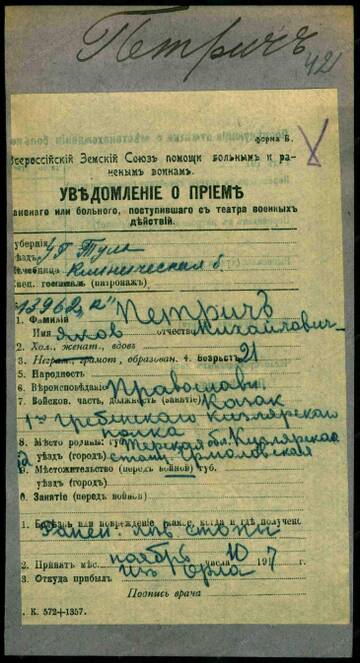 Петричъ
421
форма Б.
Всероссійскій Земскій Союзъ помощи больнымъ и ра-
ненымъ воинамъ.
УВѢДОМЛЕНІЕ О ПРІЕМѢ
раненаго или больного, поступившаго съ театра военныхъ
дѣйствій.
Губернія
Уѣздъ г. Тула
Лечебница Клиническая б.
Спец. госпиталь (патронажъ)
13962 „к"
1. Фамилій Петричъ
Имя Яковъ отчество Михайловичъ
2. Хол., женат., вдовъ
3. Неграм., грамот., образован. 4. Возрастъ 21
5. Народность
6. Вѣроисповѣданіе Православн.
7. Войсков. часть, должность (занятіе) Казак
1го Гребенскаго Кизлярскаго
полка
8. Мѣсто родины: губ. Терская обл. Кизлярскаго
уѣздъ (город) стани. Ермоловская
9. Мѣстожительство (передъ войной) губ.
уѣздъ (город)
0. Занятіе (передъ войной)
1. Болѣзнь или поврежденіе какое, когда и гдѣ получено
Ранен. лѣв. стопы
2. Принятъ мѣс. ноябрь числа 10 1917 г.
3. Откуда прибылъ из Орла
Подпись врача
К. 572+1357.